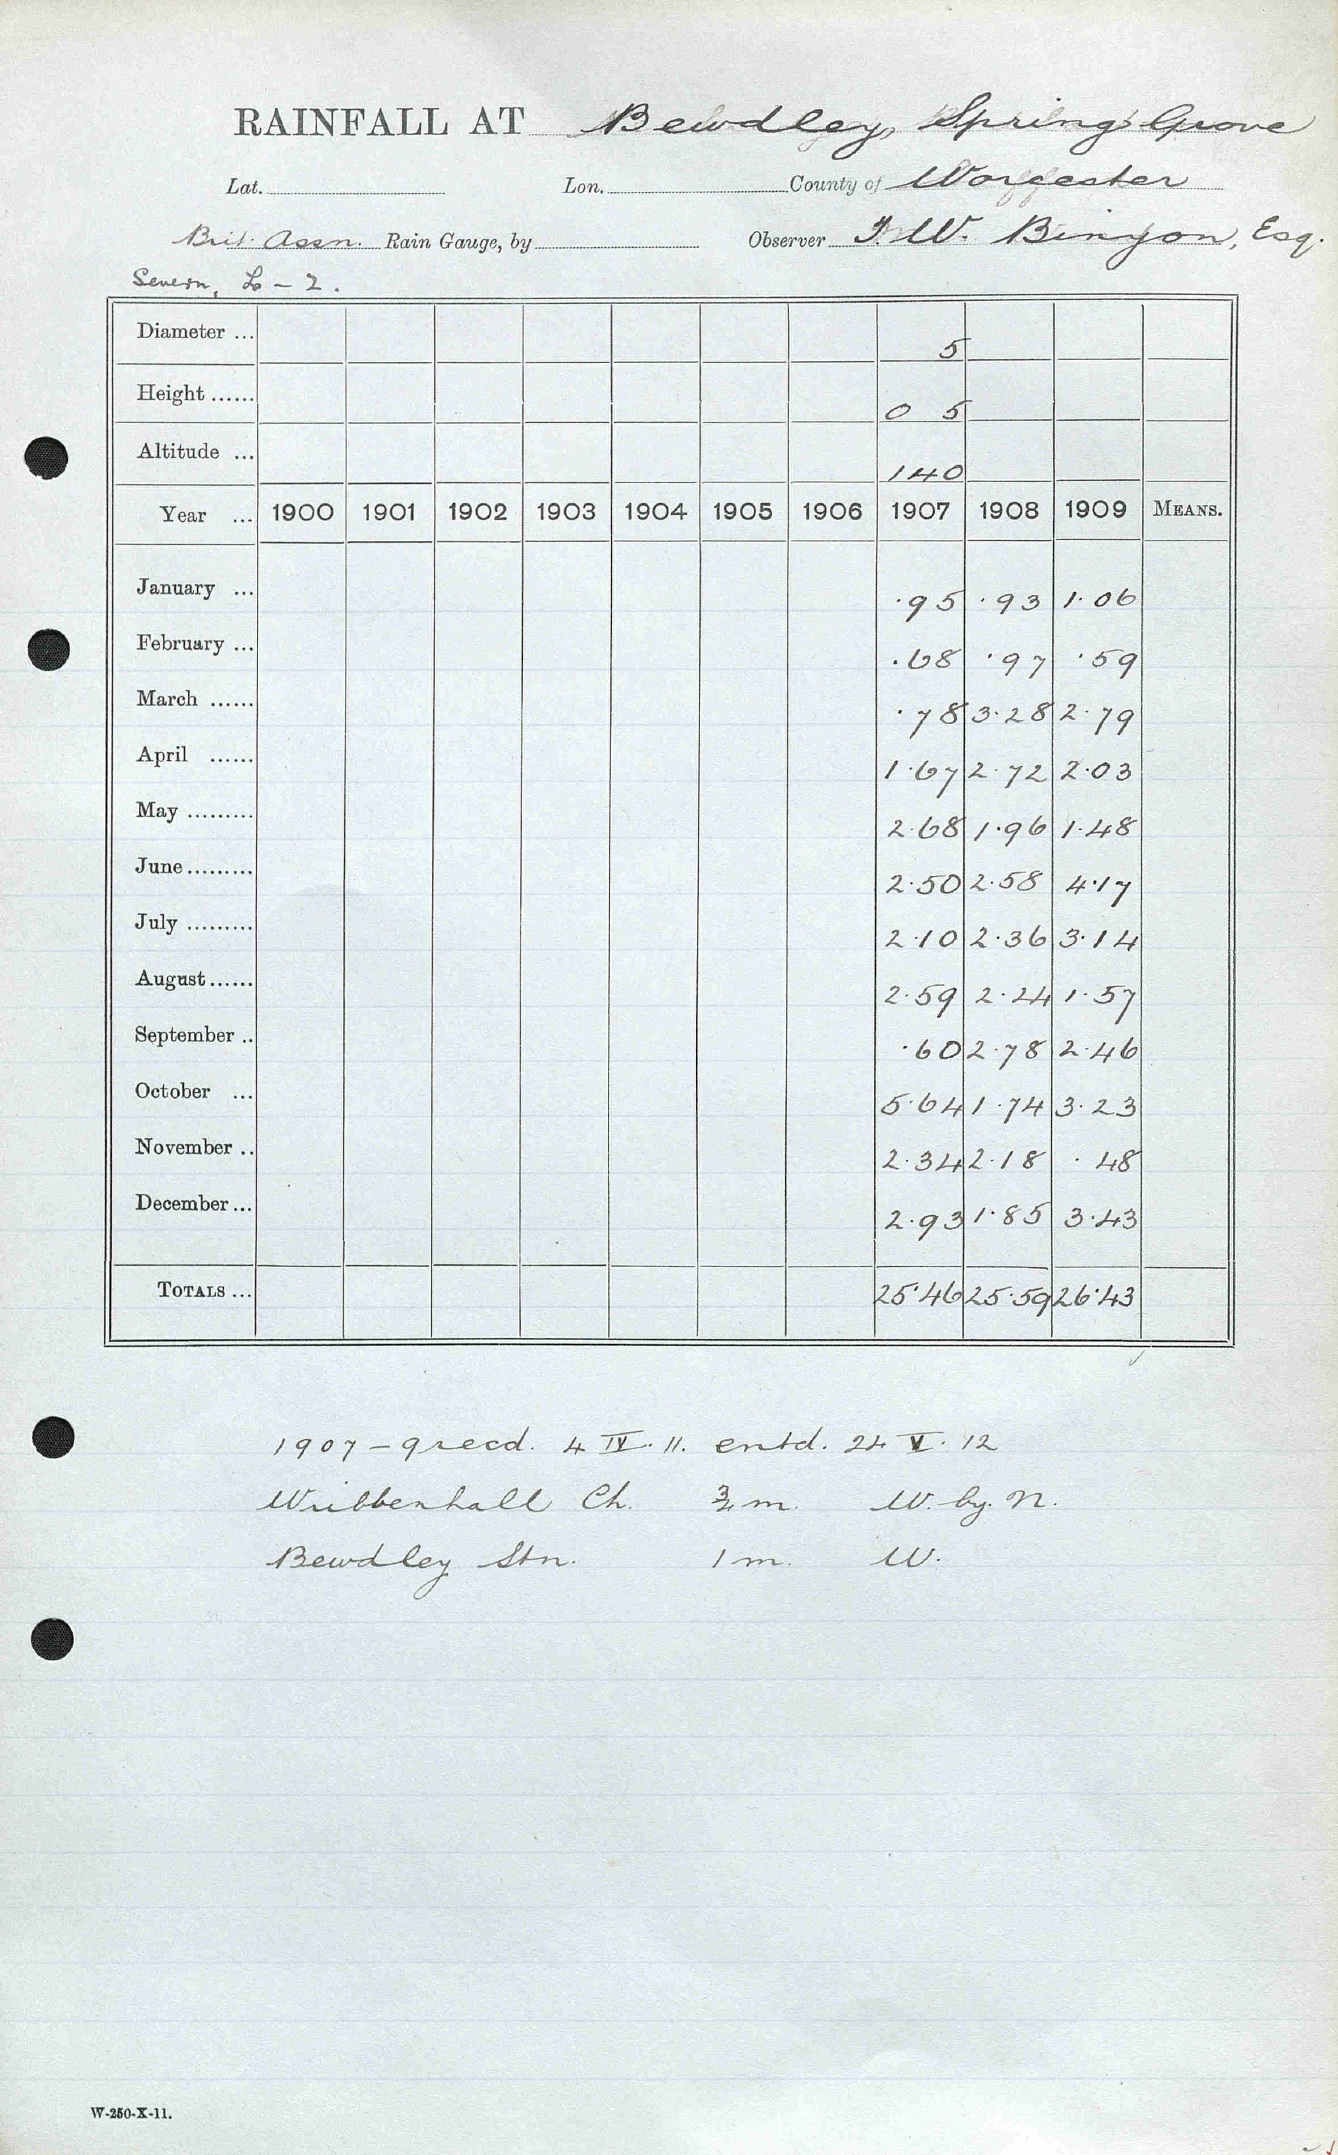 RAINFALL AT Bewdley, Spring Grove
Lat. Lon. County of Worcester
Brit. Assn. Rain Gauge, by Observer J. W. Binyon, Esq.
Severn, L - 2.
Diameter ... 5
Height ...... 0 5
Altitude ... 140
Year ... 1900 1901 1902 1903 1904 1905 1906 1907 1908 1909 MEANS.
January ... ·95 ·93 1·06
February ... ·68 ·97 ·59
March ...... ·78 3·28 2·79
April ...... 1·67 2·72 2·03
May ......... 2·68 1·96 1·48
June ......... 2·50 2·58 4·17
July ......... 2·10 2·36 3·14
August ...... 2·59 2·24 1·57
September .. ·60 2·78 2·46
October ... 5·64 1·74 3·23
November .. 2·34 2·18 ·48
December ... 2·93 1·85 3·43
TOTALS ... 25·46 25·59 26·43
1907 - 9 recd. 4 IV. 11. entd. 24 V. 12
Wribbenhall Ch. ¾ m. W. by. N.
Bewdley Stn. 1 m. W.
W-250-X-11.